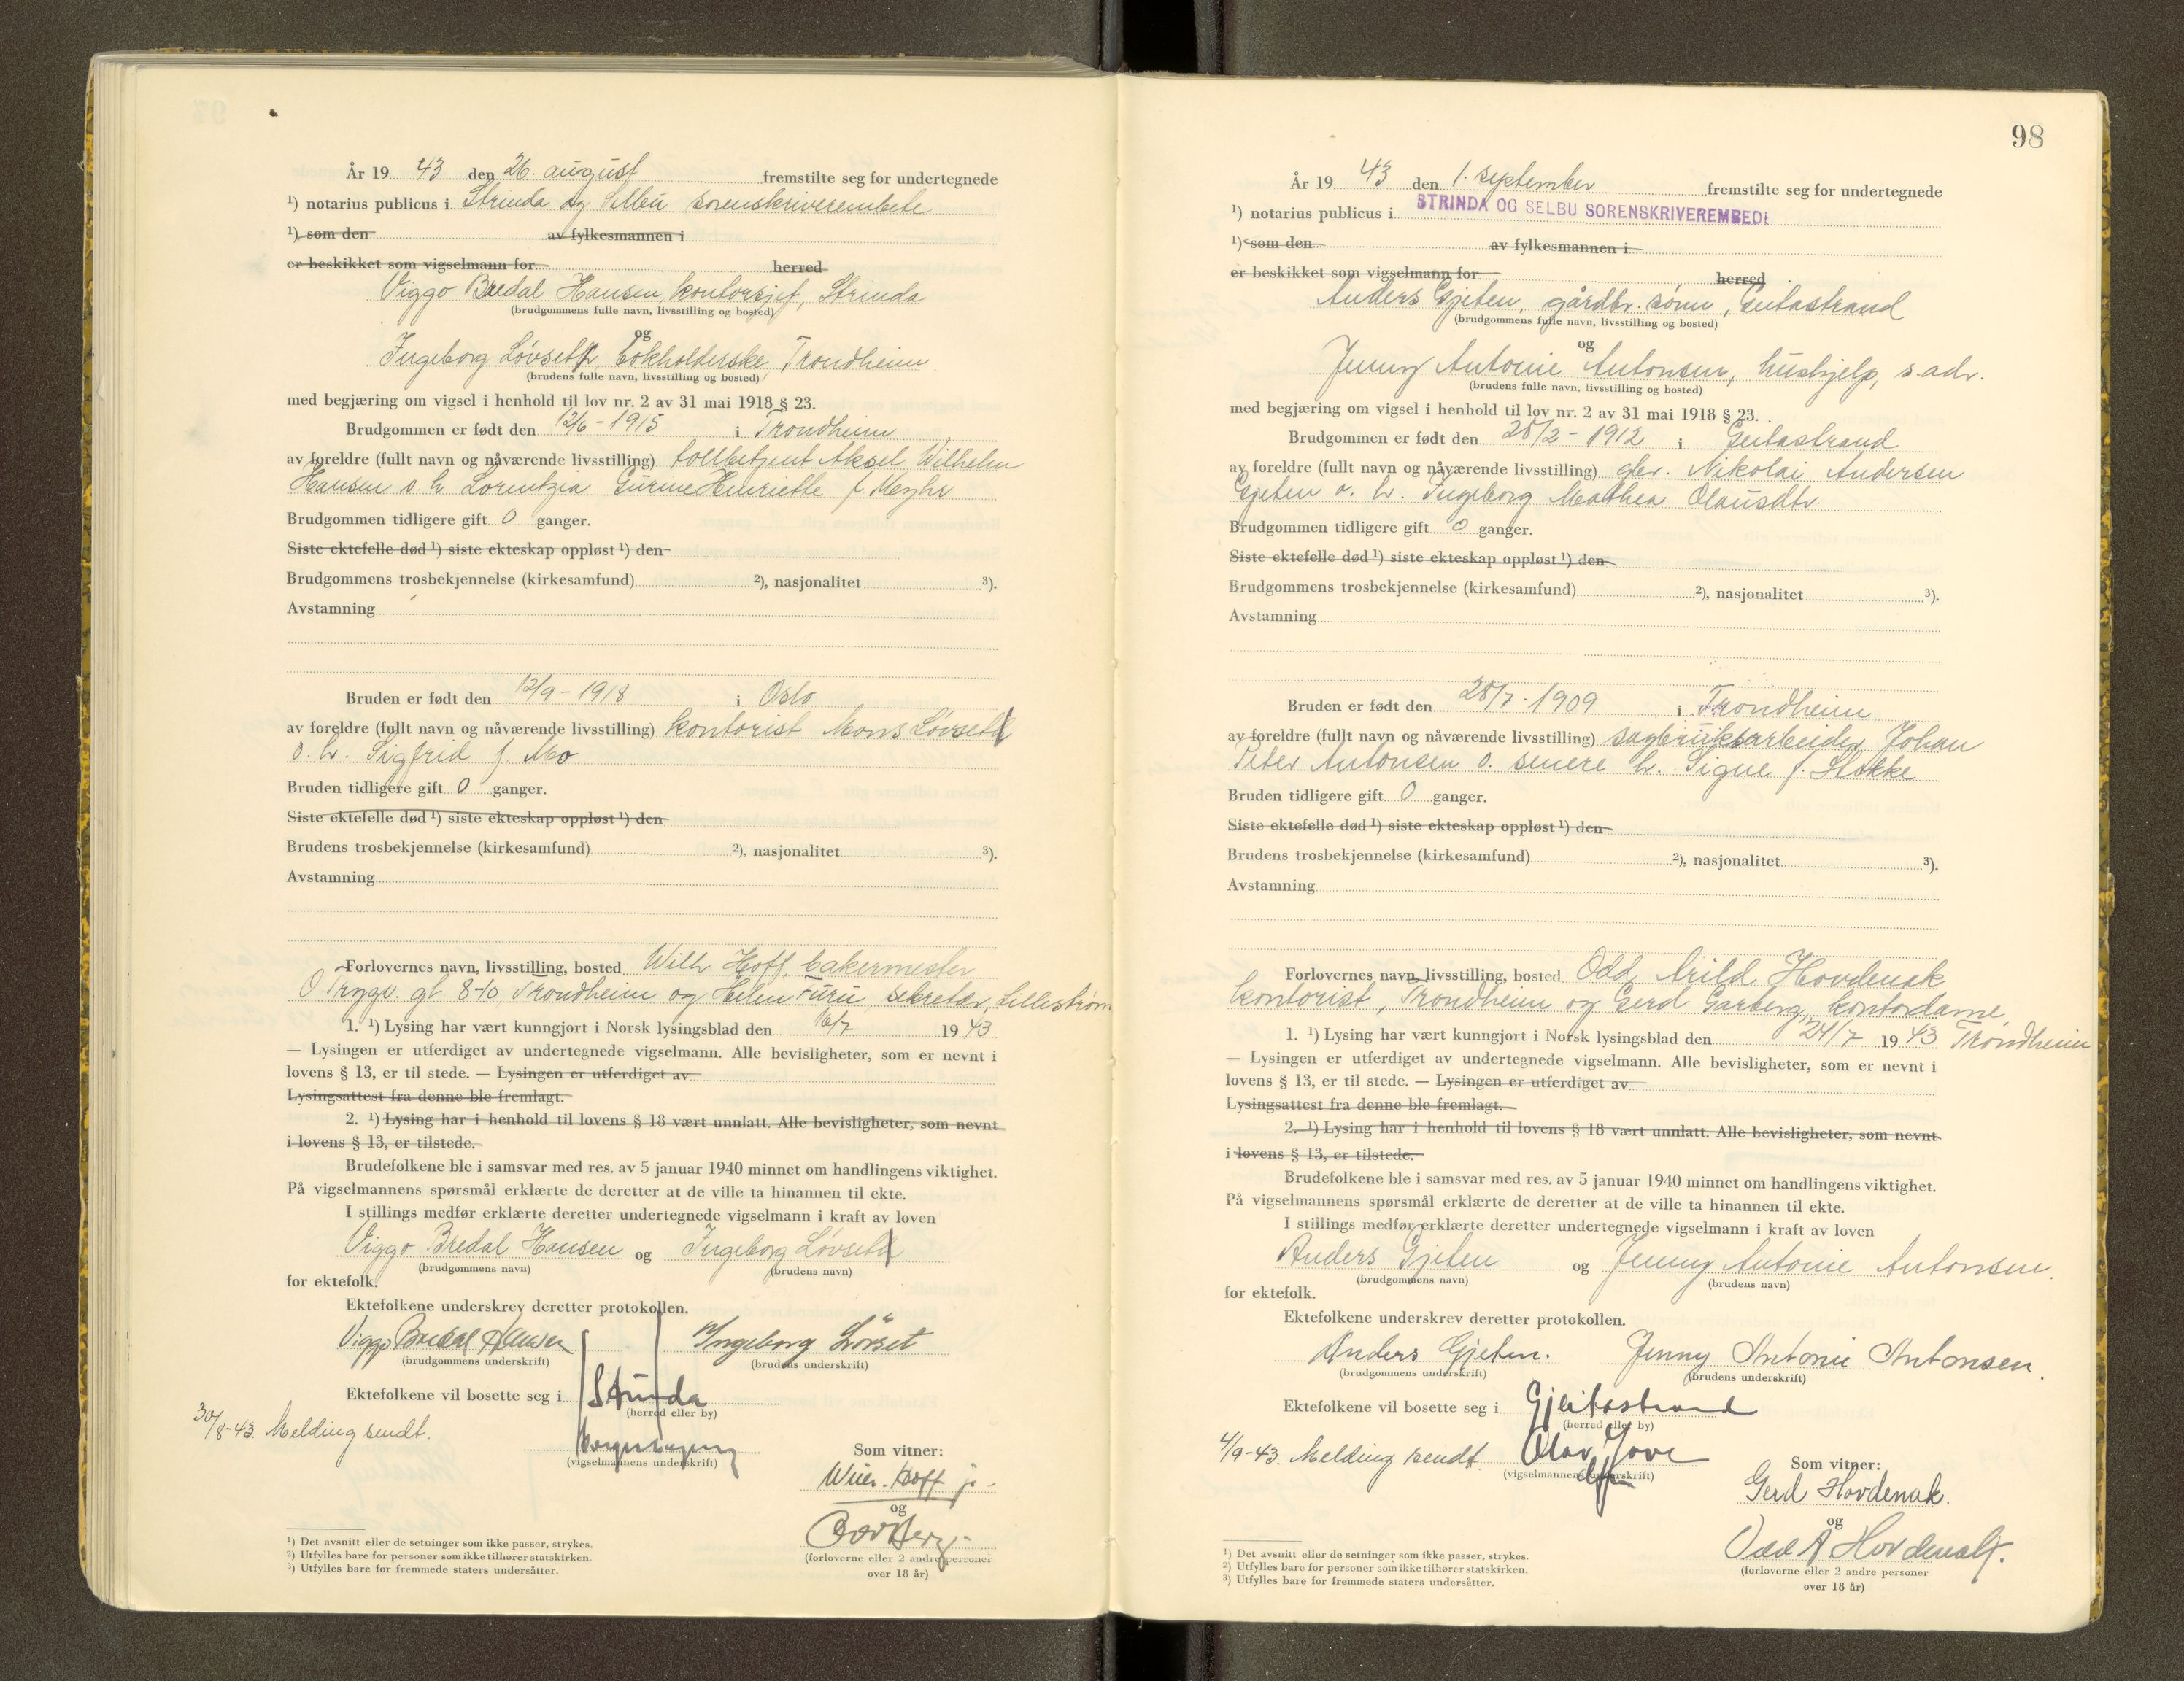 År 19 43 den 26. august fremstilte seg for undertegnede
¹) notarius publicus i Strinda og Selbu sorenskriverembete
¹) som den av fylkesmannen i
er beskikket som vigselmann for herred
Viggo Bredal Hansen, kontorsjef, Strinda
(brudgommens fulle navn, livsstilling og bosted)
og
Ingeborg Løvseth, bokholderske, Trondheim.
(brudens fulle navn, livsstilling og bosted)
med begjæring om vigsel i henhold til lov nr. 2 av 31 mai 1918 § 23.
Brudgommen er født den 12/6 - 1915 i Trondheim
av foreldre (fullt navn og nåværende livsstilling) tollbetjent Aksel Wilhelm
Hansen o. h. Lorentzea Henriette f.
Brudgommen tidligere gift 0 ganger.
Siste ektefelle død ¹) siste ekteskap oppløst ¹) den
Brudgommens trosbekjennelse (kirkesamfund) ²), nasjonalitet ³).
Avstamning
Bruden er født den 12/9 - 1918 i Oslo
av foreldre (fullt navn og nåværende livsstilling) kontorist Mons Løvseth
o. h. Sigfrid f. Mo
Bruden tidligere gift 0 ganger.
Siste ektefelle død ¹) siste ekteskap oppløst ¹) den
Brudens trosbekjennelse (kirkesamfund) ²), nasjonalitet ³).
Avstamning
Forlovernes navn, livsstilling, bosted Wilh Hoff, bakermester
O Trygv. gt 8-10 Trondheim og Helen Furu, sekretær, Lillestrøm
1. ¹) Lysing har vært kunngjort i Norsk lysingsblad den 6/7 19 43
— Lysingen er utferdiget av undertegnede vigselmann. Alle bevisligheter, som er nevnt i
lovens § 13, er til stede. — Lysingen er utferdiget av
Lysingsattest fra denne ble fremlagt.
2. ¹) Lysing har i henhold til lovens § 18 vært unnlatt. Alle bevisligheter, som nevnt
i lovens § 13, er tilstede.
Brudefolkene ble i samsvar med res. av 5 januar 1940 minnet om handlingens viktighet.
På vigselmannens spørsmål erklærte de deretter at de ville ta hinannen til ekte.
I stillings medfør erklærte deretter undertegnede vigselmann i kraft av loven
Viggo Bredal Hansen og Ingeborg Løvseth
(brudgommens navn) (brudens navn)
for ektefolk.
Ektefolkene underskrev deretter protokollen.
Viggo Bredal Hansen Ingeborg Løvset
(brudgommens underskrift) (brudens underskrift)
Ektefolkene vil bosette seg i Strinda
(herred eller by)
30/8-43. Melding sendt.
(vigselmannens underskrift)
Som vitner:
Wilh. Hoff jr.
og
(forloverne eller 2 andre personer
over 18 år)
¹) Det avsnitt eller de setninger som ikke passer, strykes.
²) Utfylles bare for personer som ikke tilhører statskirken.
³) Utfylles bare for fremmede staters undersåtter.
98
År 19 43 den 1. september fremstilte seg for undertegnede
¹) notarius publicus i STRINDA OG SELBU SORENSKRIVEREMBEDE
¹) som den av fylkesmannen i
er beskikket som vigselmann for herred
Anders Gjeten, gårdbr. sønn, Geitastrand
(brudgommens fulle navn, livsstilling og bosted)
og
Jenny Antonie Antonsen, hushjelp, s. adr.
(brudens fulle navn, livsstilling og bosted)
med begjæring om vigsel i henhold til lov nr. 2 av 31 mai 1918 § 23.
Brudgommen er født den 25/2 - 1912 i Geitastrand
av foreldre (fullt navn og nåværende livsstilling) gbr. Nikolai Andersen
Gjeten o. h. Ingeborg Mathea Olausdtr.
Brudgommen tidligere gift 0 ganger.
Siste ektefelle død ¹) siste ekteskap oppløst ¹) den
Brudgommens trosbekjennelse (kirkesamfund) ²), nasjonalitet ³).
Avstamning
Bruden er født den 28/7 - 1909 i Trondheim
av foreldre (fullt navn og nåværende livsstilling) sagbruksarbeider Johan
Peter Antonsen o. senere h. Signe f. Stokke
Bruden tidligere gift 0 ganger.
Siste ektefelle død ¹) siste ekteskap oppløst ¹) den
Brudens trosbekjennelse (kirkesamfund) ²), nasjonalitet ³).
Avstamning
Forlovernes navn, livsstilling, bosted Odd Arild Hovdenak
kontorist, Trondheim og Gerd Garberg, kontordame,
1. ¹) Lysing har vært kunngjort i Norsk lysingsblad den 24/7 19 43 Trondheim
— Lysingen er utferdiget av undertegnede vigselmann. Alle bevisligheter, som er nevnt i
lovens § 13, er til stede. — Lysingen er utferdiget av
Lysingsattest fra denne ble fremlagt.
2. ¹) Lysing har i henhold til lovens § 18 vært unnlatt. Alle bevisligheter, som nevnt
i lovens § 13, er tilstede.
Brudefolkene ble i samsvar med res. av 5 januar 1940 minnet om handlingens viktighet.
På vigselmannens spørsmål erklærte de deretter at de ville ta hinannen til ekte.
I stillings medfør erklærte deretter undertegnede vigselmann i kraft av loven
Anders Gjeten og Jenny Antonie Antonsen.
(brudgommens navn) (brudens navn)
for ektefolk.
Ektefolkene underskrev deretter protokollen.
Anders Gjeten. Jenny Antonie Antonsen.
(brudgommens underskrift) (brudens underskrift)
Ektefolkene vil bosette seg i Gjeitastrand
(herred eller by)
4/9-43. Melding sendt. Olav
(vigselmannens underskrift)
Som vitner:
Gerd Hovdenak.
og
Odd A Hovdenak.
(forloverne eller 2 andre personer
over 18 år)
¹) Det avsnitt eller de setninger som ikke passer, strykes.
²) Utfylles bare for personer som ikke tilhører statskirken.
³) Utfylles bare for fremmede staters undersåtter.